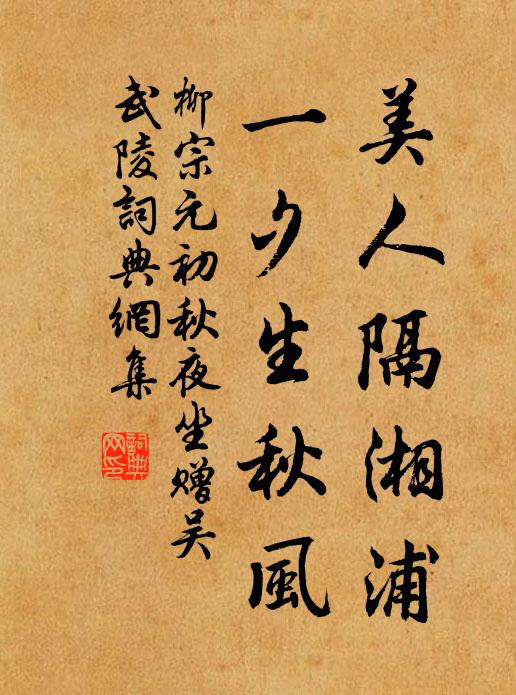 美人隔湘浦
一夕生秋風
柳宗元初秋夜坐贈吳
武陵詞典網集
詞典网印